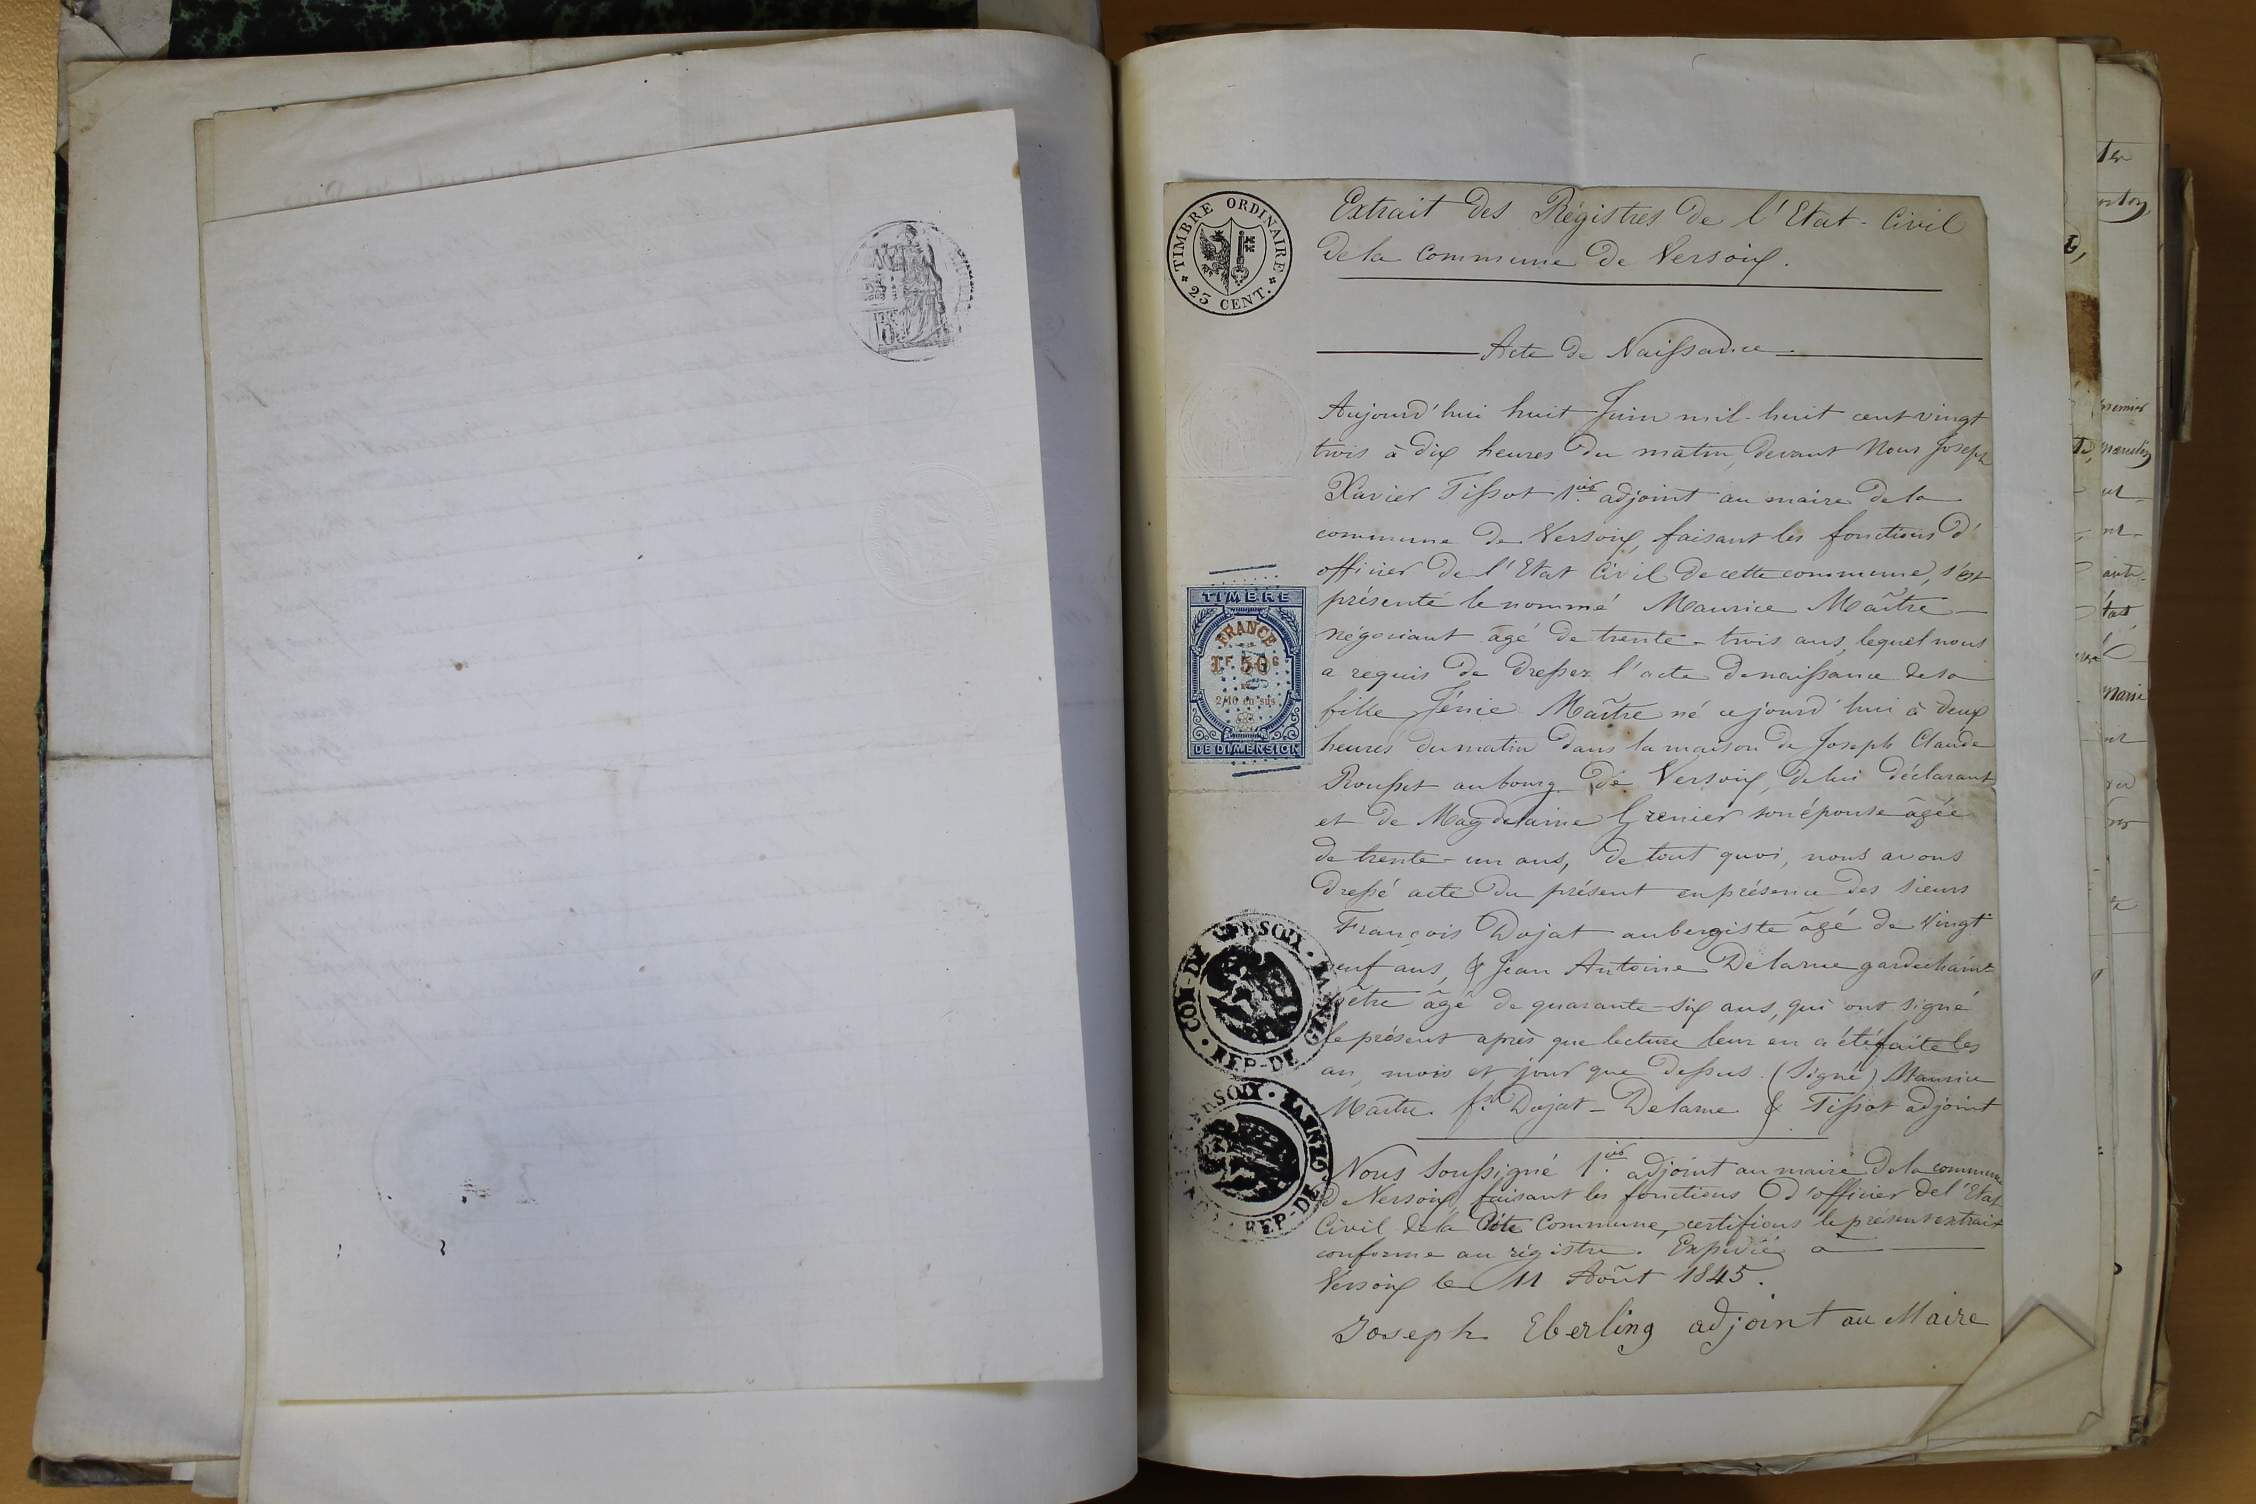 TIMBRE ORDINAIRE
* 25 CENT. *
Extrait des Régistres de l'Etat-Civil
de la Commune de Versoix.
Acte de Naissance.
Aujourd'hui huit Juin mil-huit cent vingt
trois à dix heures du matin, devant Nous Joseph
Xavier Tissot 1.ier adjoint au maire de la
commune de Versoix, faisant les fonctions d'
officier de l'Etat Civil de cette commune, s'est
présenté le nommé Maurice Maître
négociant âgé de trente-trois ans, lequel nous
a requis de dresser l'acte de naissance de sa
fille Jénie Maître né ce jourd'hui à deux
heures du matin dans la maison de Joseph Claude
Rousset au bourg de Versoix, de lui déclarant
et de Magdelaine Grenier son épouse âgée
de trente-un ans, de tout quoi, nous avons
dressé acte du présent en présence des sieurs
François Dujat aubergiste âgé de vingt
neuf ans, & Jean Antoine Delarue garde champ
pêtre âgé de quarante-six ans, qui ont signé
le présent après que lecture leur en a été faite les
an, mois et jour que dessus. (Signé) Maurice
Maître. f.s Dujat - Delarue & Tissot adjoint
Nous soussigné 1.ier adjoint au maire de la commune
de Versoix faisant les fonctions d'officier de l'Etat
Civil de la dite Commune, certifions le présent extrait
conforme au régistre. Expédié à
Versoix le 11 Août 1845.
Joseph Eberling adjoint au Maire
TIMBRE
FRANCE
1F. 50c
2/10 en sus
DE DIMENSION
COM-DE VERSOIX.
REP-DE GENEVA
VERSOIX.
REP-DE GENEVA